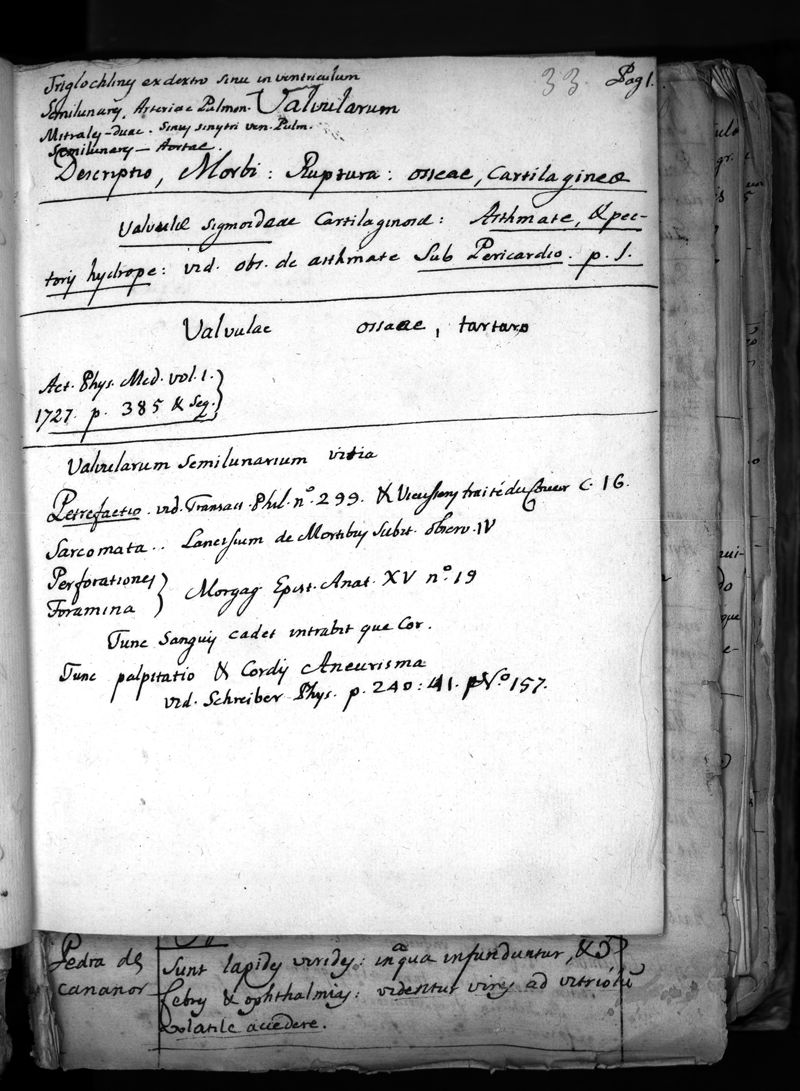 33. Pag 1.
Triglochiny ex dextro sinu in ventriculum
Semilunary, Arteriae Pulmon. Valvularum
Mitraley - duae. Sinuy sinytri ven. Pulm.
Semilunary — Aortae.
Descriptio, Morbi: Ruptura: osseae, Cartilagineæ
Valvulæ Sigmoideae Cartilaginosæ: Asthmate, & pec-
torij hydrope: vid. obs. de asthmate Sub Pericardio. p. 1.
Valvulae osseae, tartaro
Act. Phys. Med. vol. 1.
1727. p. 385 & Seq.
Valvularum Semilunarium vitia
Petrefactio. vid. Transact. Phil. n.º 299. & Vieusseny traité du Coeur C. 16.
Sarcomata.. Lancisium de Mortibuy Subit. observ. IV
Perforationey
Foramina
Morgag Epist. Anat. XV nº 19
Tunc Sanguij cadet intrabit que Cor.
Tunc palpitatio & Cordij Aneurisma
vid. Schreiber Phys. p. 240: 41. Nº 157.
Pedra de
cananor
Sunt lapidey viridey: in aqua infunduntur, &
febry & ophthalmiay: videntur virey ad vitriolū
volatile accedere.